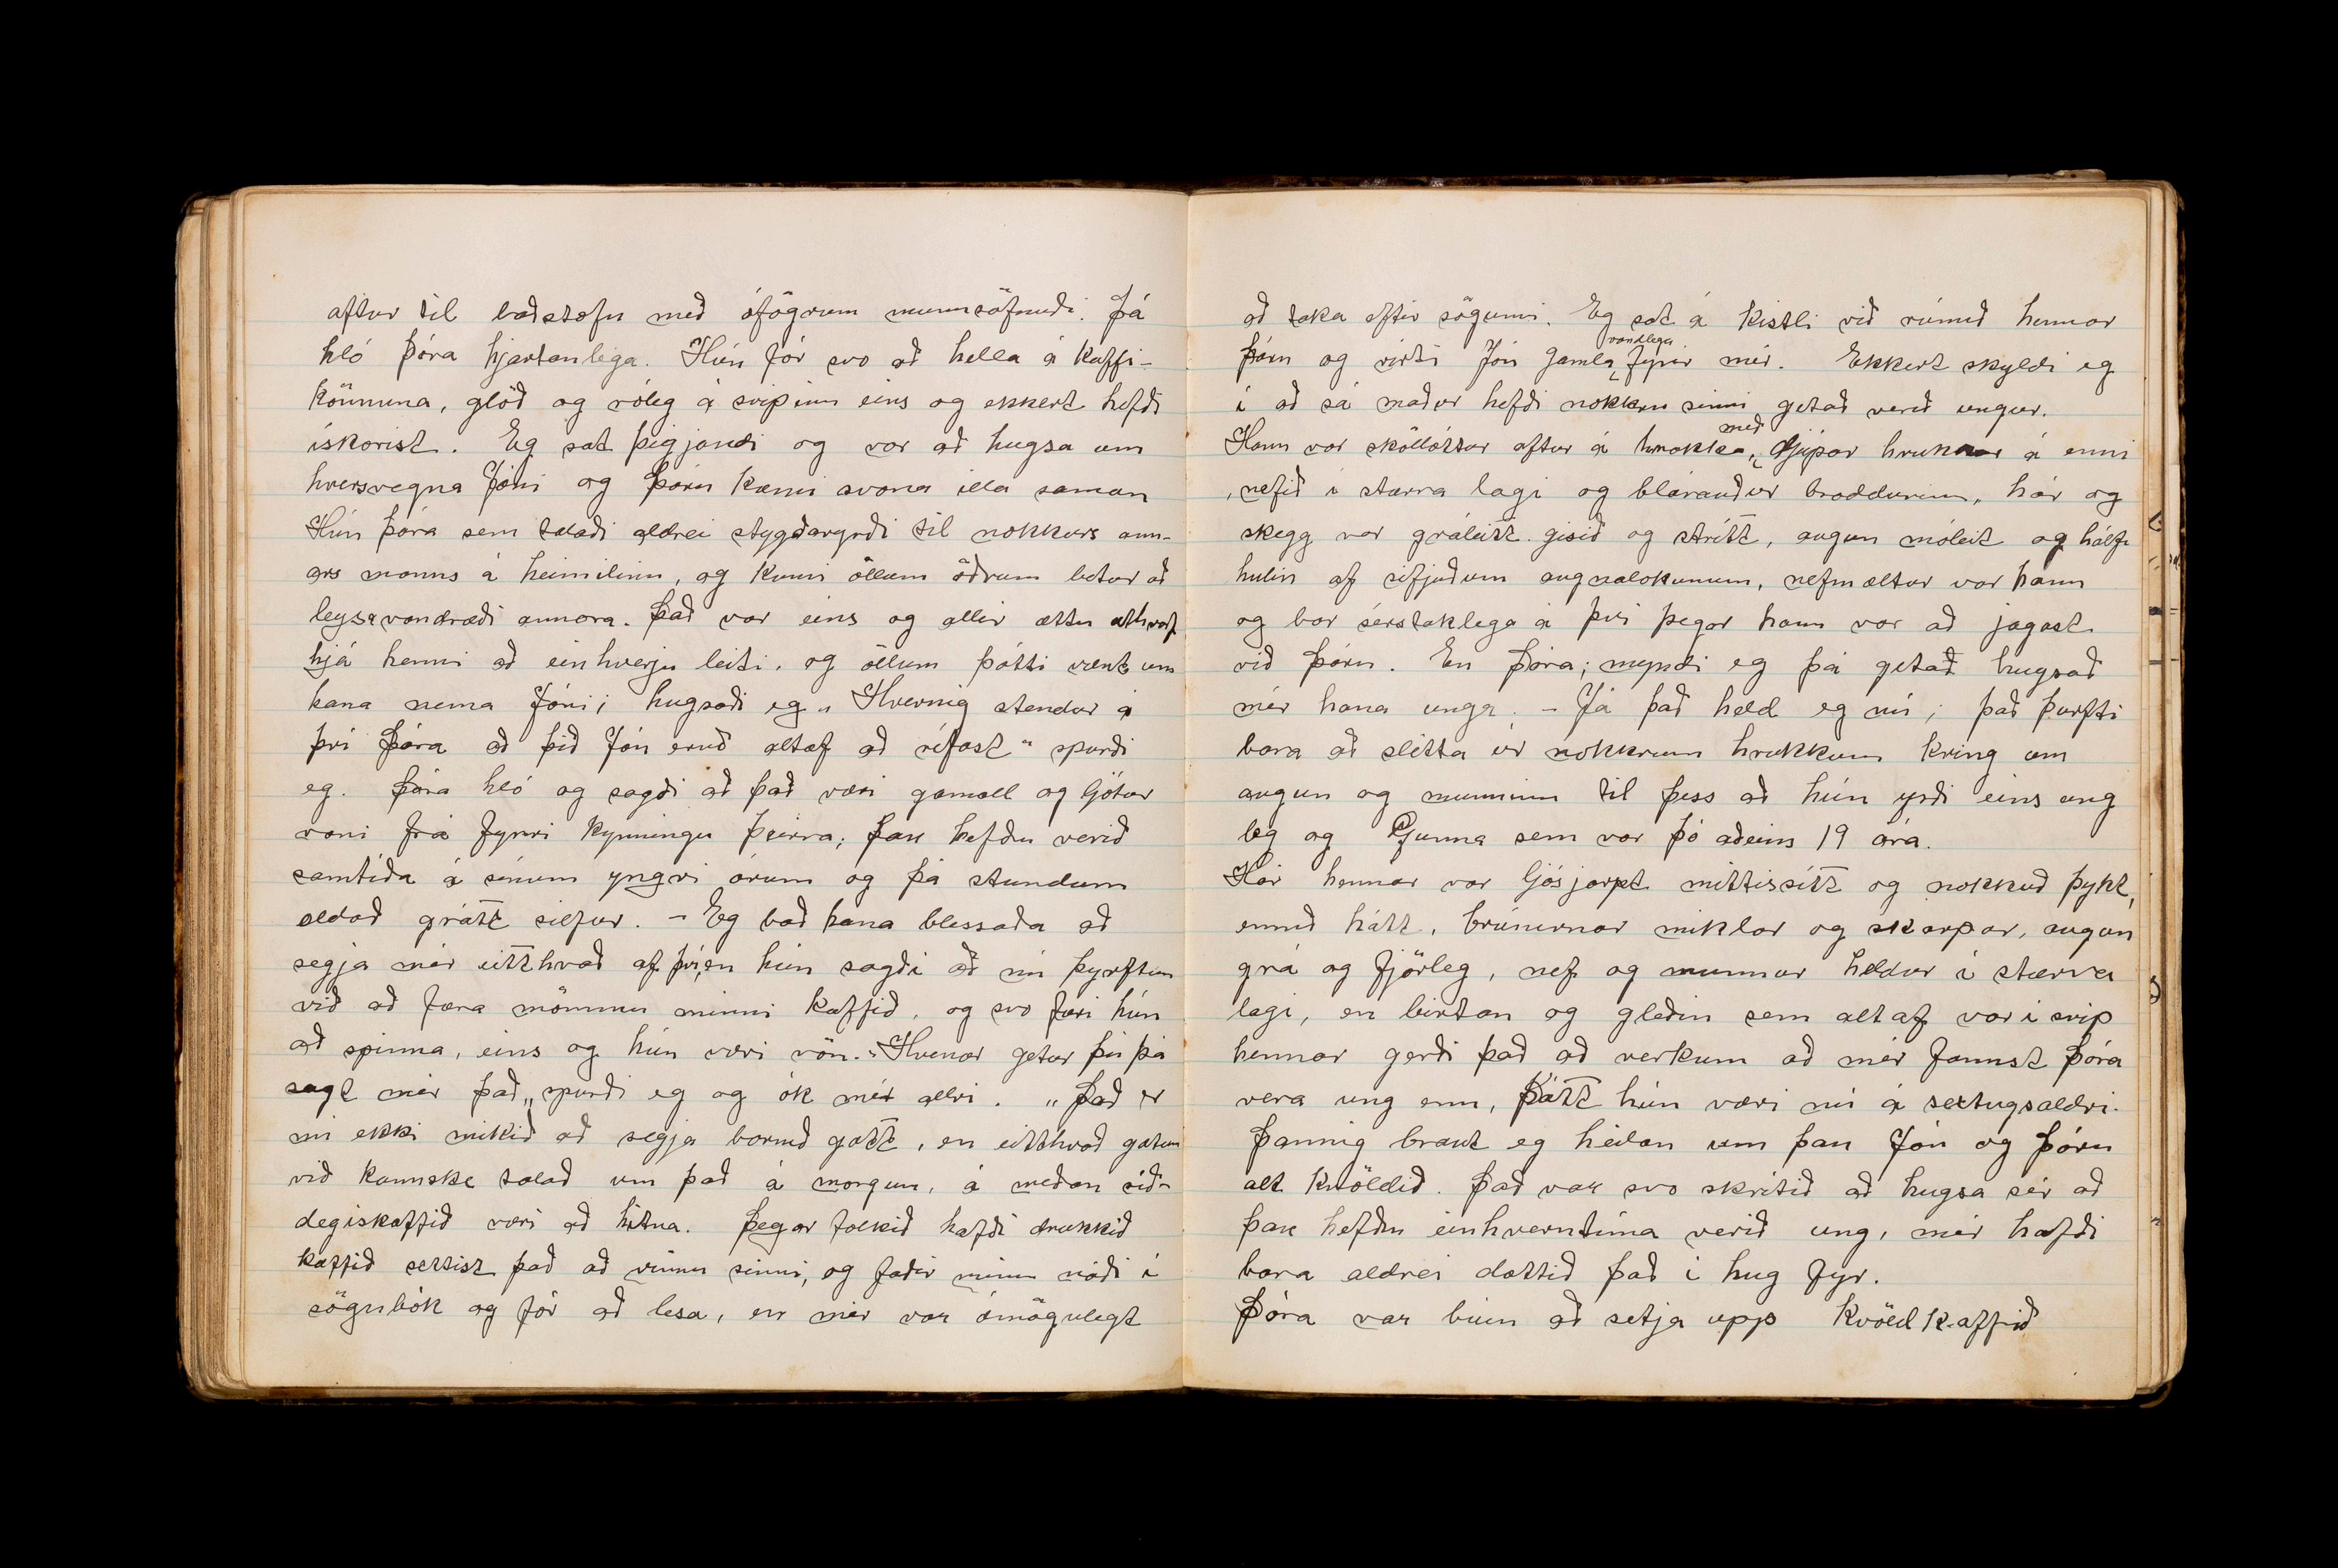 aftur til baðstofu með ófögrum munnsöfnuði. Þá
hló Þóra hjartanlega. Hún fór svo að hella á kaffi-
könnuna, glöð og róleg á svipinn eins og ekkert hefði
ískorist. Eg sat þegjandi og var að hugsa um
hversvegna Jóni og Þóru kæmi svona illa saman
Hún Þóra sem talaði aldrei stygðaryrði til nokkurs ann-
ars manns á heimilinu, og kunni öllum öðrum betur að
leysa vandræði annara. Það var eins og allir ættu athvarf
hjá henni að einhverju leiti, og öllum þótti vænt um
hana nema Jóni; hugsaði eg „ Hvernig stendur á
því Þóra að þið Jón eruð altaf að rífast" spurði
eg. Þóra hló og sagði að það væri gamall og ljótur
vani frá fyrri kynningu þeirra; þau hefðu verið
samtíða á sínum yngri árum og þá stundum
eldað grátt silfur. - Eg bað hana blessaða að
segja mér eitthvað af því, en hún sagði að nú þyrftum
við að færa mömmu minni kaffið, og svo færi hún
að spinna, eins og hún væri vön. „Hvenar getur þú þá
sagt mér það„ spurði eg og ók mér allri. „ Það er
nú ekki mikið að segja barnið gott, en eitthvað getum
við kannske talað um það á morgun, á meðan síð-
degiskaffið væri að hitna. Þegar folkið hafði drukkið
kaffið settist það að vinnu sinni, og faðir minn náði í
sögubók og fór að lesa, en mér var ómögulegt
að taka eftir sögunni. Eg sat á kistli við rúmið hennar
Þóru og virti Jón gamla vandlega fyrir mér. Ekkert skyldi eg
í að sá maður hefði nokkru sinni getað verið ungur.
Hann var sköllóttur aftur á hnakka, með djúpar hrukkur á enni
, nefið í stærra lagi og blárauður broddurinn, hár og
skegg var gráleitt gisið og strítt, augun móleit og hálf
hulin af sifjuðum augnalokunum, nefmæltur var hann
og bar sérstaklega á því þegar hann var að jagast
við Þóru. En Þóra; myndi eg þá getað hugsað
mér hana unga. - Já það held eg nú; það þurfti
bara að slétta úr nokkrum hrukkum kring um
augun og munninn til þess að hún yrði eins ung
leg og Gunna sem var þó aðeins 19 ára.
Hár hennar var ljósjarpt mittissítt og nokkuð þykt,
ennið hátt, brúnirnar miklar og skarpar, augun
grá og fjörleg, nef og munnur heldur í stærra
lagi, en birtan og gleðin sem altaf var í svip
hennar gerði það að verkum að mér fannst Þóra
vera ung enn, þótt hún væri nú á sextugsaldri.
Þannig braut eg heilan um þau Jón og Þóru
alt kvöldið. Það var svo skrítið að hugsa sér að
þau hefðu einhverntíma verið ung, mér hafði
bara aldrei dottið það í hug fyr.
Þóra var búin að setja upp kvöldkaffið